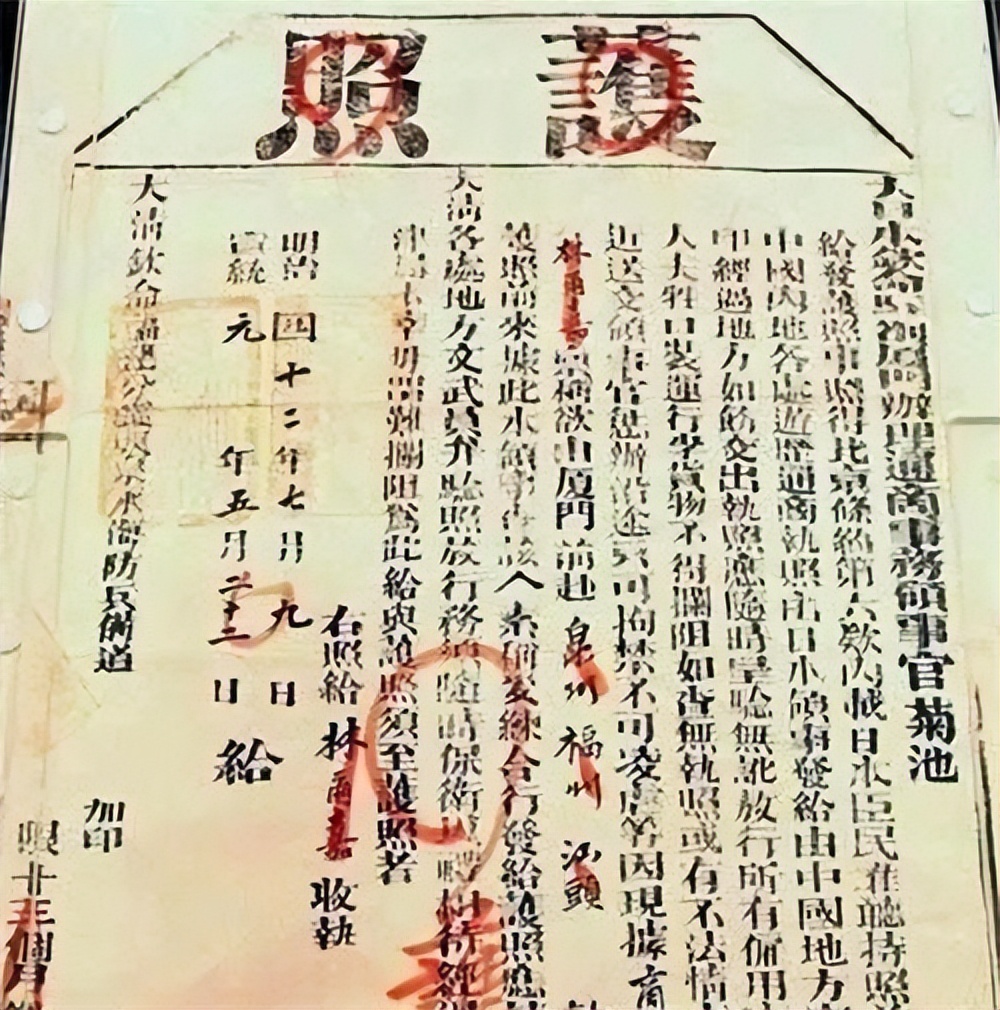 護照
大日本欽命駐劄厦門辦理通商事務領事官菊池
給發護照事照得北京條約第六款內載日本臣民准聽持照
中國內地各處遊歷通商執照由日本領事發給由中國地方
印經過地方如飭交出執照應隨時呈驗無訛放行所有僱用
人夫牲口裝運行李貨物不得攔阻如查無執照或有不法情
近送交領事官懲辦沿途只可拘禁不可凌虐等因現據商
林爾嘉稟稱欲由厦門前赴泉州福州汕頭
護照前來據此本領事 該人素稱妥練合行發給護照應
大清各處地方文武員弁驗照放行務須隨時保衛 相待經
毋 難攔阻為此給與護照須至護照者
右照給林爾嘉收執
明治四十二年七月九日
宣統元年五月二十二日給
大清欽命福建分巡興泉永海防兵備道
加印
限十三個月